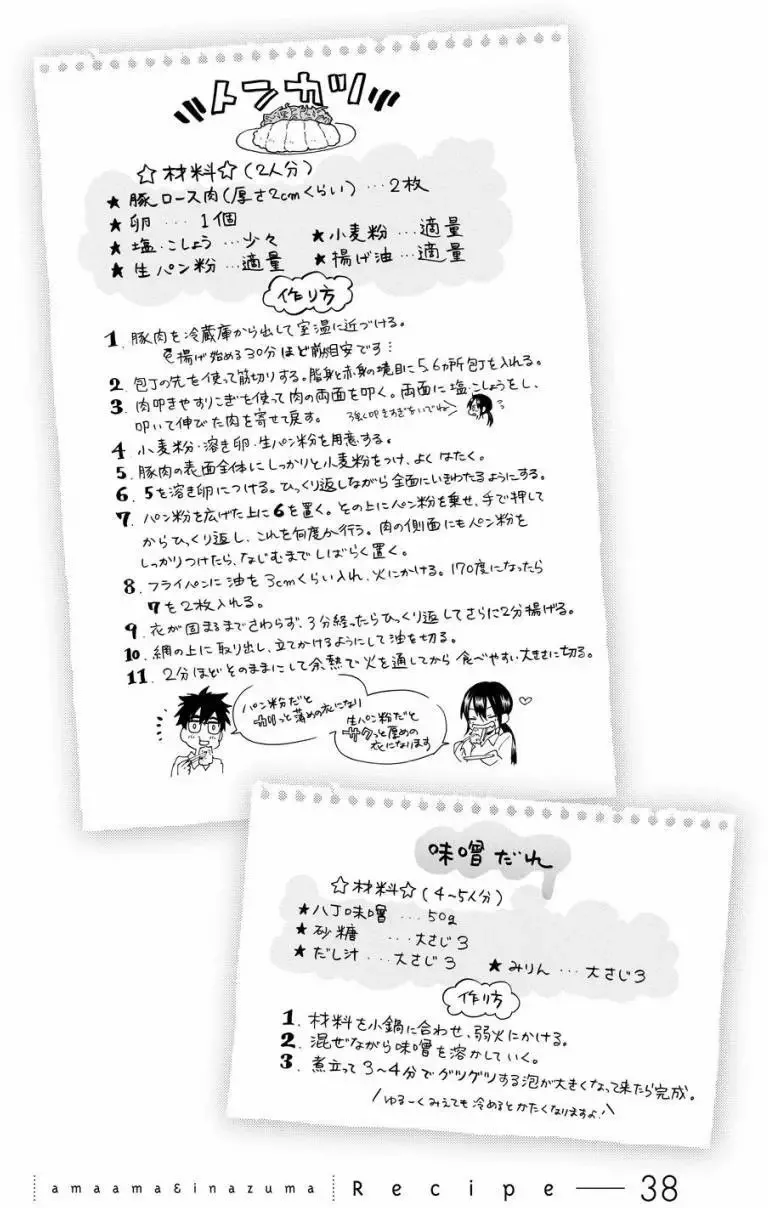 トンカツ
☆材料☆(2人分)
★豚ロース肉(厚さ2cmくらい)…2枚
★卵…1個
★塩・こしょう…少々 ★小麦粉…適量
★生パン粉…適量 ★揚げ油…適量
作り方
1. 豚肉を冷蔵庫から出して室温に近づける。
揚げ始める30分ほど前が目安です…
2. 包丁の先を使って筋切りする。脂身と赤身の境目に5、6か所包丁を入れる。
3. 肉叩きやすりこぎを使って肉の両面を叩く。両面に塩・こしょうをし、
叩いて伸びた肉を寄せて戻す。 強く叩きすぎないでね
4. 小麦粉・溶き卵・生パン粉を用意する。
5. 豚肉の表面全体にしっかりと小麦粉をつけ、よくはたく。
6. 5を溶き卵につける。ひっくり返しながら全面にいきわたるようにする。
7. パン粉を広げた上に6を置く。その上にパン粉を乗せ、手で押して
からひっくり返し、これを何度か行う。肉の側面にもパン粉を
しっかりつけたら、なじむまでしばらく置く。
8. フライパンに油を3cmくらい入れ、火にかける。170度になったら
7を2枚入れる。
9. 衣が固まるまでさわらず、3分経ったらひっくり返してさらに2分揚げる。
10. 網の上に取り出し、立てかけるようにして油を切る。
11. 2分ほどそのままにして余熱で火を通してから食べやすい大きさに切る。
パン粉だと
カリッと薄めの衣になり
生パン粉だと
サクッと厚めの
衣になります
味噌だれ
☆材料☆(4~5人分)
★八丁味噌…50g
★砂糖…大さじ3
★だし汁…大さじ3 ★みりん…大さじ3
作り方
1. 材料を小鍋に合わせ、弱火にかける。
2. 混ぜながら味噌を溶かしていく。
3. 煮立って3~4分でグツグツする泡が大きくなって来たら完成。
ゆるーくみえても冷めるとかたくなりますよ
amaama&inazuma Recipe—38